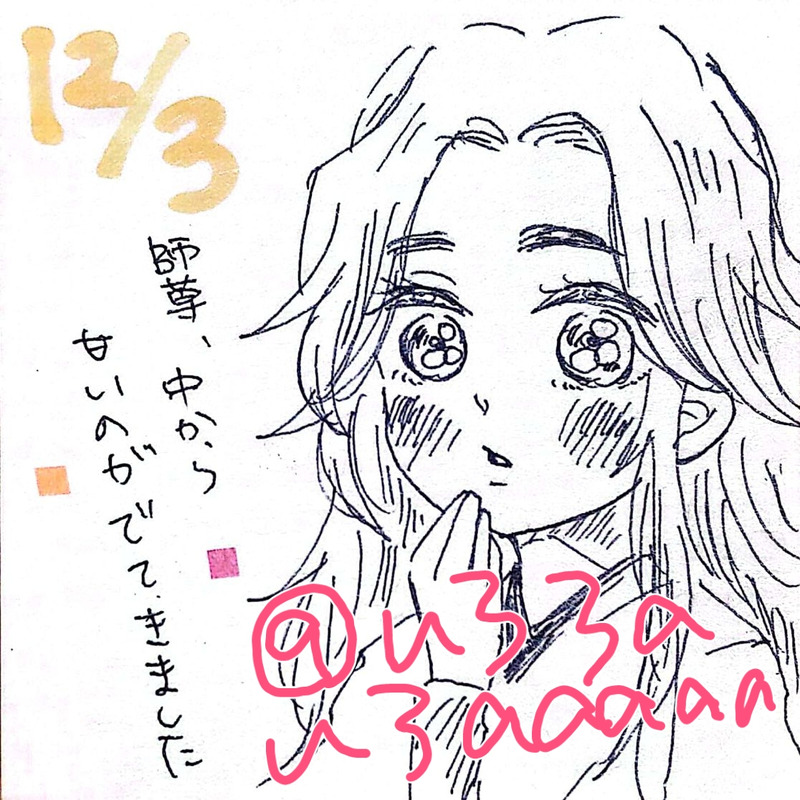 12/3
師尊、中から
甘いのがでてきました
@いろろa
いろaaaaaa